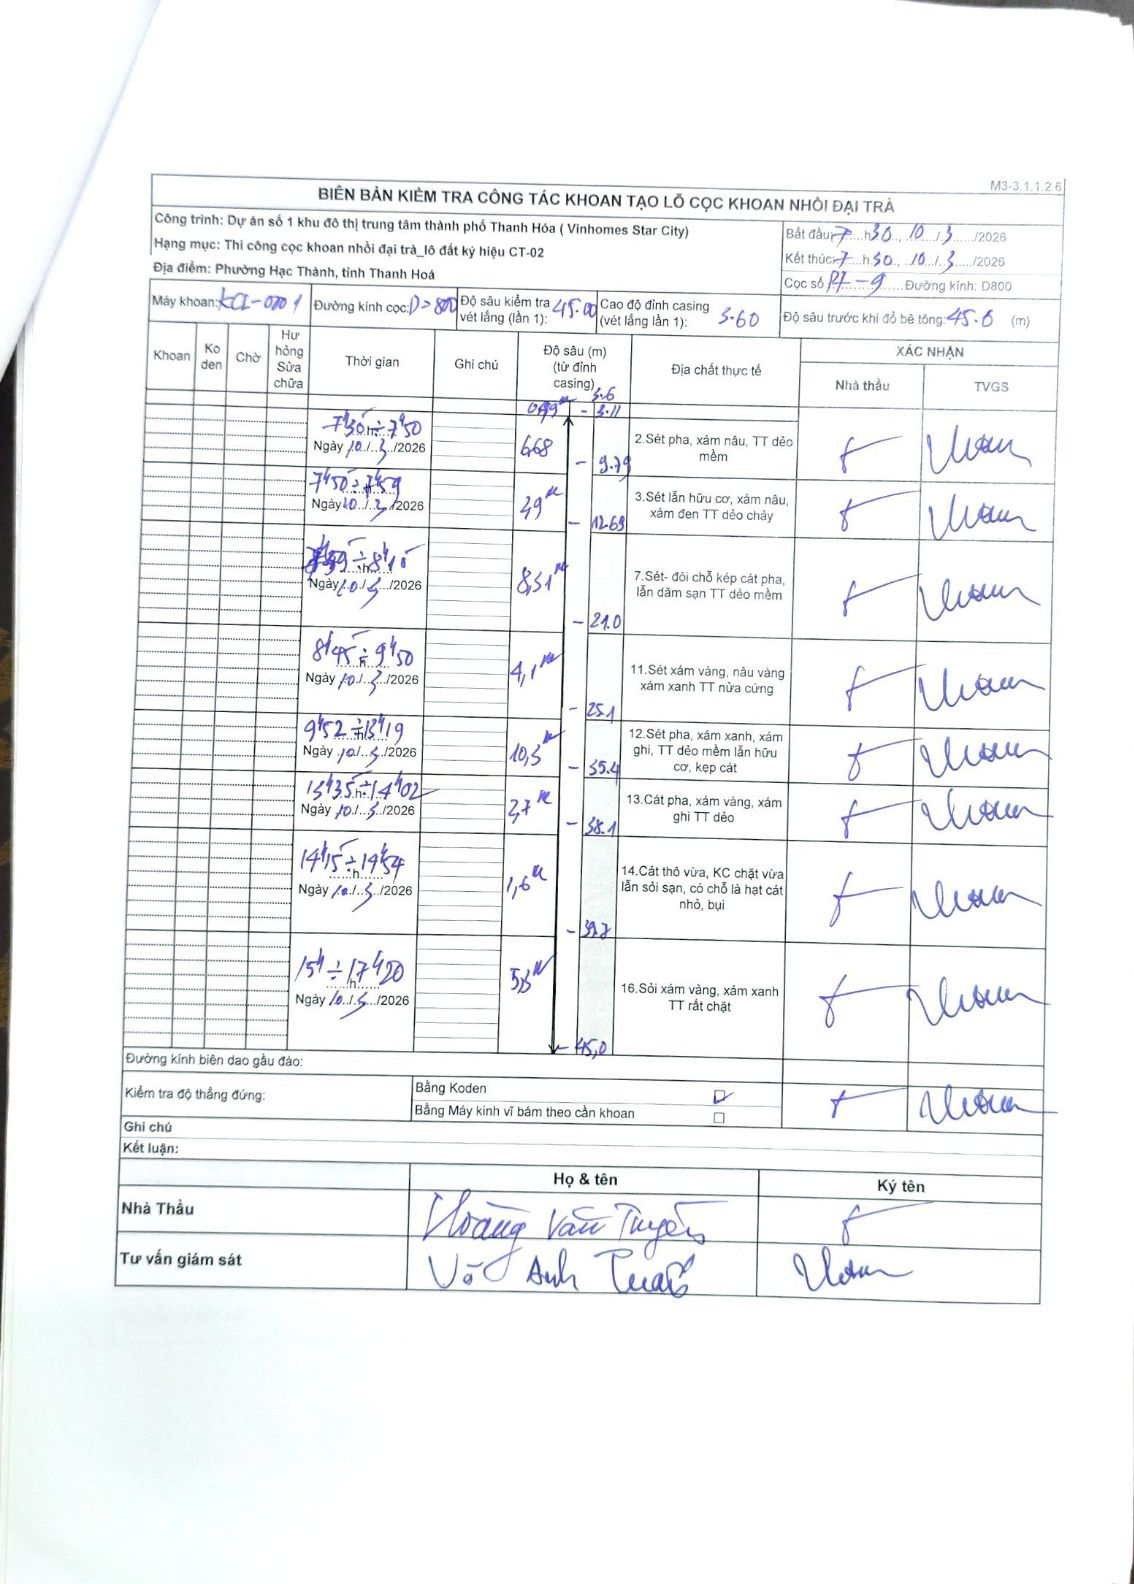 M3-3.1.1.2.6
BIÊN BẢN KIỂM TRA CÔNG TÁC KHOAN TẠO LỖ CỌC KHOAN NHỒI ĐẠI TRÀ
Công trình: Dự án số 1 khu đô thị trung tâm thành phố Thanh Hóa ( Vinhomes Star City)
Hạng mục: Thi công cọc khoan nhồi đại trà_lô đất ký hiệu CT-02
Địa điểm: Phường Hạc Thành, tỉnh Thanh Hoá
Bắt đầu: 7 h 30, 10 / 3 /2026
Kết thúc: 7 h 30, 10 / 3 /2026
Cọc số - 9 Đường kính: D800
Máy khoan: Đường kính cọc: D=800 Độ sâu kiểm tra vét lắng (lần 1): 45.00 Cao độ đỉnh casing (vét lắng lần 1): 3.60 Độ sâu trước khi đổ bê tông: 45.6 (m)
Khoan Ko den Chờ Hư hỏng Sửa chữa Thời gian Ghi chú Độ sâu (m) (từ đỉnh casing) Địa chất thực tế XÁC NHẬN
Nhà thầu TVGS
3.6
- 3.11
7h30 ÷ 7h50
Ngày 10 / 3 /2026 6,68 - 9.79 2.Sét pha, xám nâu, TT dẻo mềm
7h50 ÷ 7h59
Ngày 10 / 3 /2026 - 12.69 3.Sét lẫn hữu cơ, xám nâu, xám đen TT dẻo chảy
÷ 8h
Ngày 10 / 3 /2026 8,31 m - 21.0 7.Sét- đôi chỗ kép cát pha, lẫn dăm sạn TT dẻo mềm
8h45 ÷ 9h50
Ngày 10 / 3 /2026 4,1 m - 25.1 11.Sét xám vàng, nâu vàng xám xanh TT nửa cứng
9h52 ÷ 13h19
Ngày 10 / 3 /2026 10,3 m - 35.4 12.Sét pha, xám xanh, xám ghi, TT dẻo mềm lẫn hữu cơ, kẹp cát
13h35 ÷ 14h02
Ngày 10 / 3 /2026 2,7 m - 38.1 13.Cát pha, xám vàng, xám ghi TT dẻo
14h15 ÷ 14h54
Ngày 10 / 3 /2026 1,6 m - 39.7 14.Cát thô vừa, KC chặt vừa lẫn sỏi sạn, có chỗ là hạt cát nhỏ, bụi
15h ÷ 17h20
Ngày 10 / 3 /2026 5,3 m - 45,0 16.Sỏi xám vàng, xám xanh TT rất chặt
Đường kính biên dao gầu đào:
Kiểm tra độ thẳng đứng: Bằng Koden
Bằng Máy kinh vĩ bám theo cần khoan
Ghi chú
Kết luận:
Họ & tên Ký tên
Nhà Thầu Hoàng Văn Tuyển
Tư vấn giám sát Võ Anh Tuấn